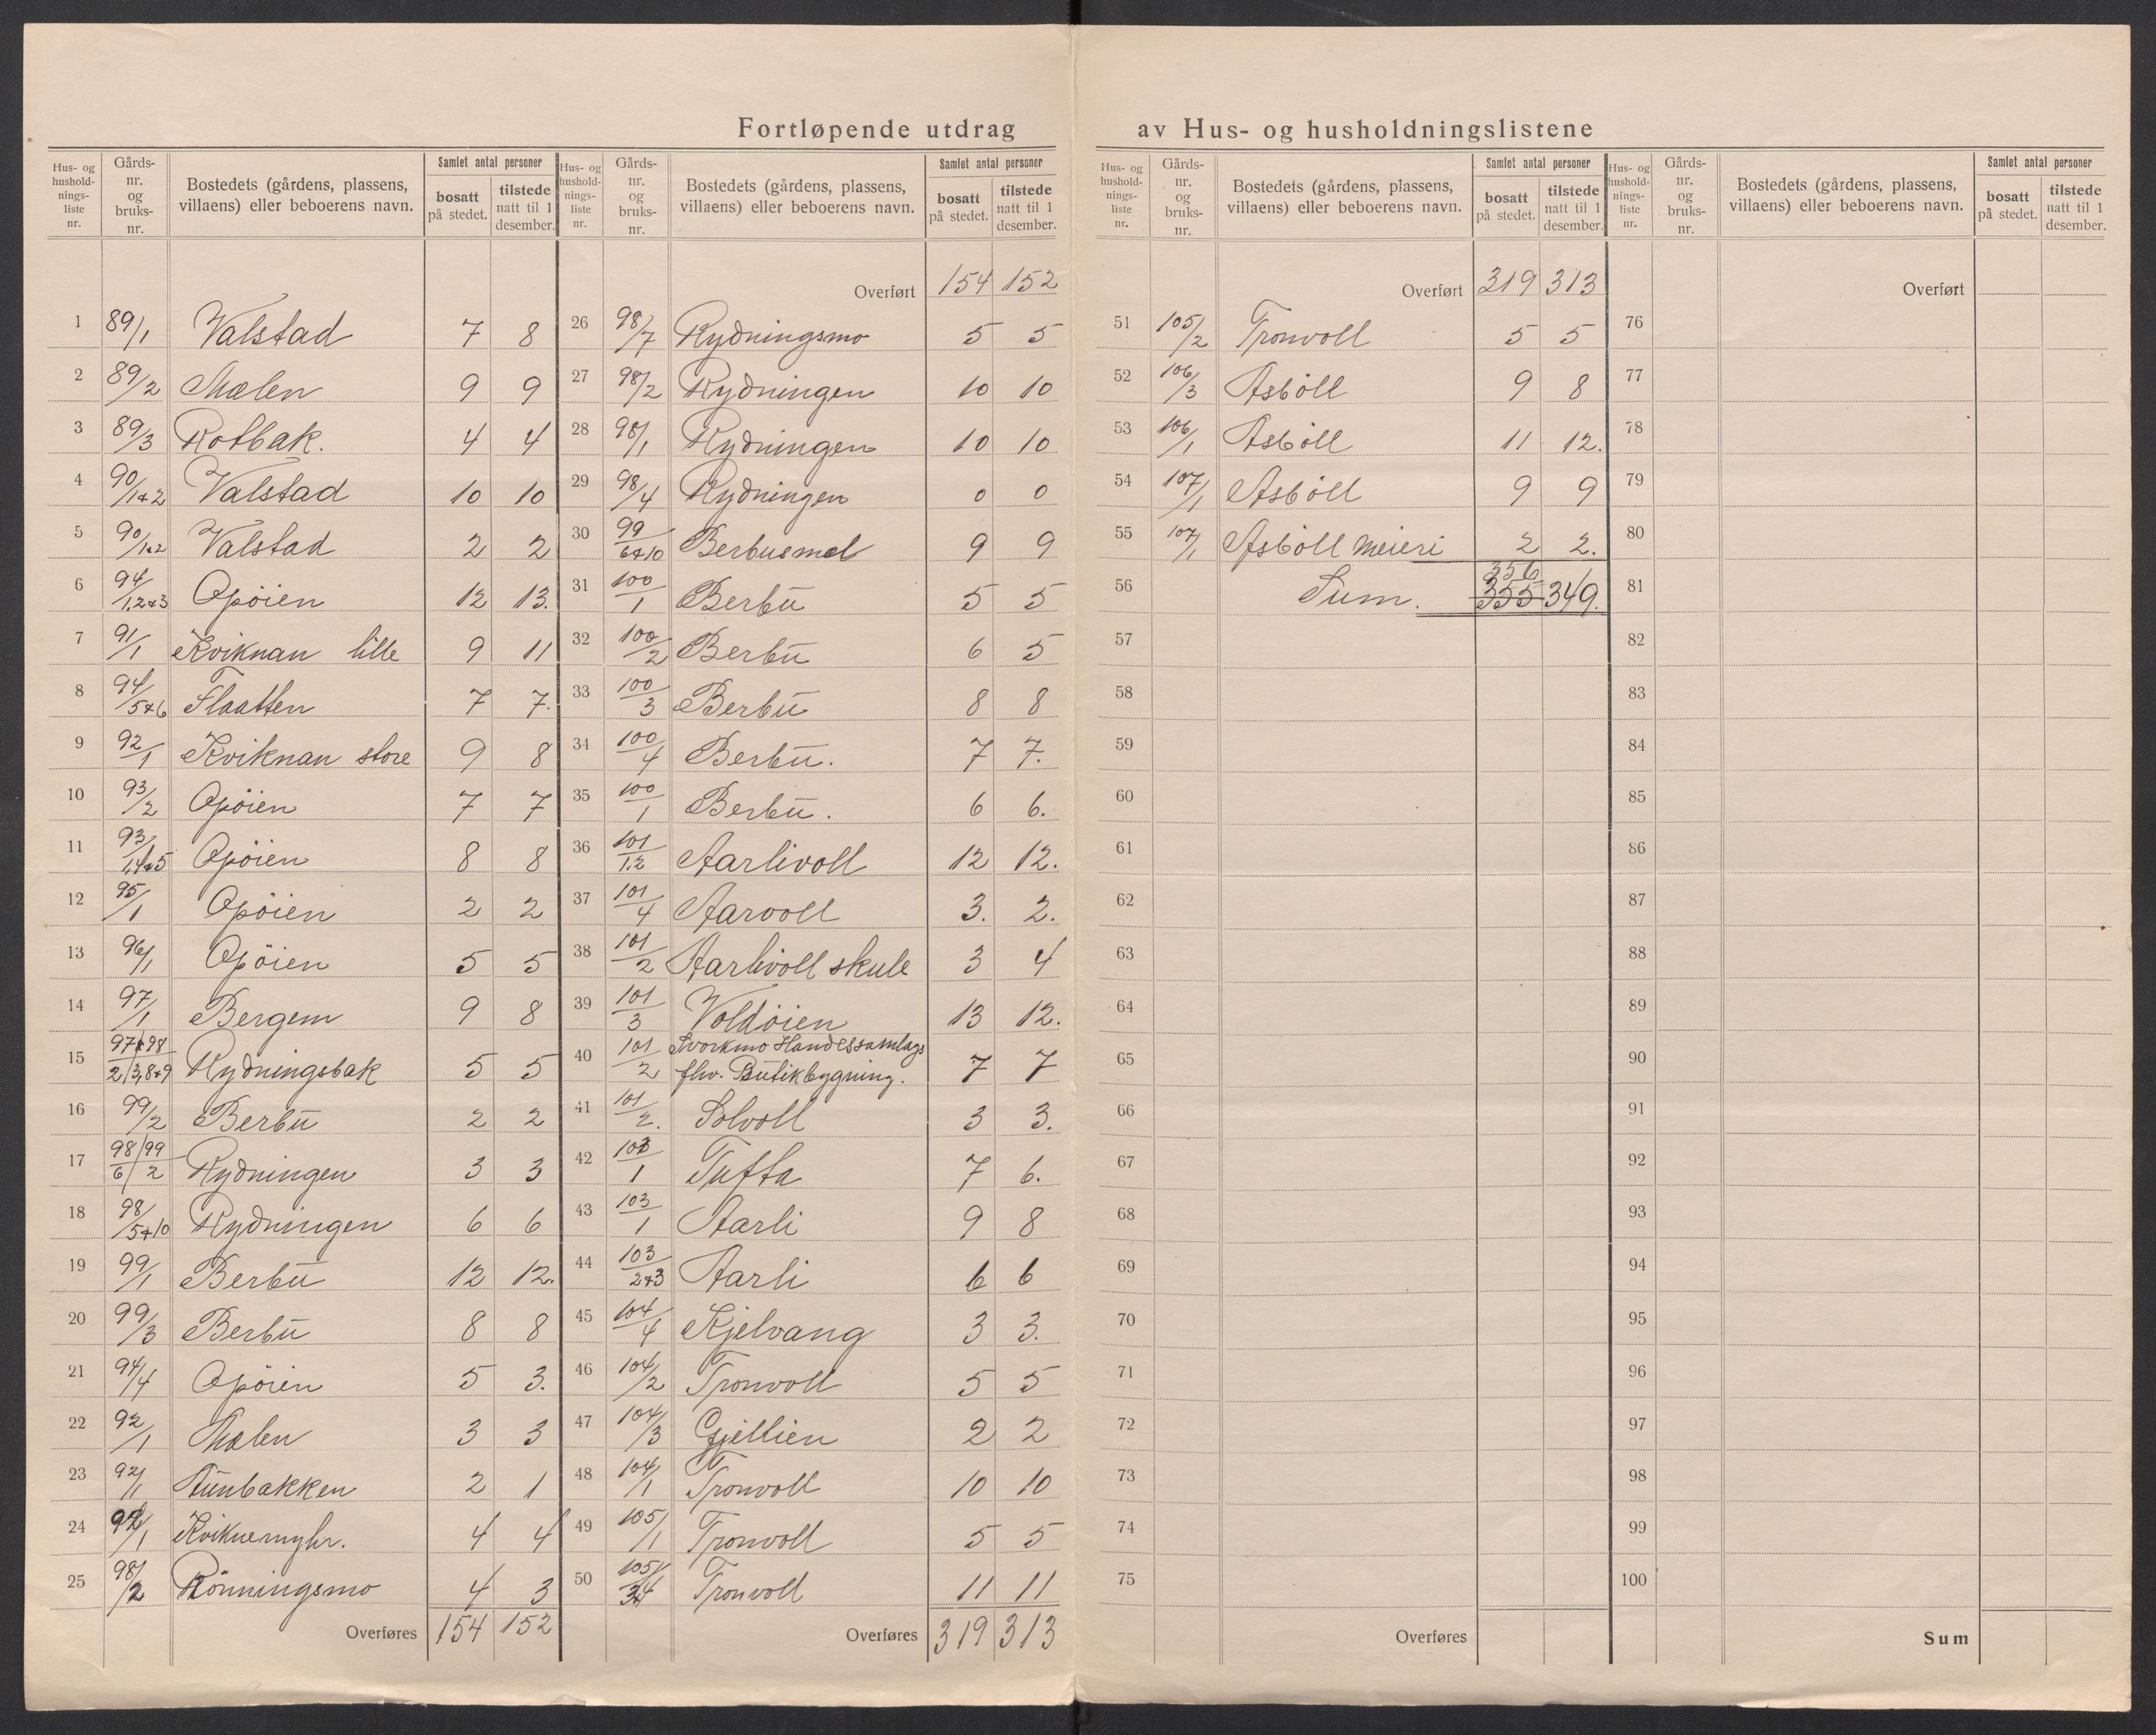 Fortløpende utdrag av Hus- og husholdningslistene
Hus- og hushold-nings-liste nr. | Gårds-nr. og bruks-nr. | Bostedets (gårdens, plassens, villaens) eller beboerens navn. | Samlet antal personer | bosatt på stedet. | tilstede natt til 1 desember.
1 89/1 Valstad 7 8
2 89/2 Mælen 9 9
3 89/3 Rotbak. 4 4
4 90/1+2 Valstad 10 10
5 90/1+2 Valstad 2 2
6 94/1,2+3 Opöien 12 13.
7 91/1 Kviknan lille 9 11
8 94/5+6 Flaatten 7 7.
9 92/1 Kviknan store 9 8
10 93/2 Opöien 7 7
11 93/1,4+5 Opöien 8 8
12 95/1 Opöien 2 2
13 96/1 Opöien 5 5
14 97/1 Bergem 9 8
15 97+98 2/3,8+9 Rydningsbak 5 5
16 99/2 Berbu 2 2
17 98/99 6/2 Rydningen 3 3
18 98/5+10 Rydningen 6 6
19 99/1 Berbu 12 12.
20 99/3 Berbu 8 8
21 94/4 Opöien 5 3.
22 92/1 Mælen 3 3
23 92/1 Aunbakken 2 1
24 92/1 Kviknemyhr. 4 4
25 98/2 Rönningsmo 4 3
Overføres 154 152
Hus- og hushold-nings-liste nr. | Gårds-nr. og bruks-nr. | Bostedets (gårdens, plassens, villaens) eller beboerens navn. | Samlet antal personer | bosatt på stedet. | tilstede natt til 1 desember.
Overført 154 152
26 98/7 Rydningsmo 5 5
27 98/2 Rydningen 10 10
28 98/1 Rydningen 10 10
29 98/4 Rydningen 0 0
30 99/6+10 Berbusmel 9 9
31 100/1 Berbu 5 5
32 100/2 Berbu 6 5
33 100/3 Berbu 8 8
34 100/4 Berbu. 7 7.
35 100/1 Berbu. 6 6.
36 101/1,2 Aarlivoll 12 12.
37 101/4 Aarvoll 3. 2.
38 101/2 Aarlivoll skule 3 4
39 101/3 Voldöien 13 12.
40 101/2 Svorkmo Handelssamlags
fhv. Butikbygning. 7 7
41 101/2. Solvoll 3 3.
42 102/1 Tufta 7 6.
43 103/1 Aarli 9 8
44 103/2+3 Aarli 6 6
45 104/4 Kjelvang 3 3.
46 104/2 Tronvoll 5 5
47 104/3 Gjellien 2 2
48 104/1 Tronvoll 10 10
49 105/1 Tronvoll 5 5
50 105/3+4 Tronvoll 11 11
Overføres 319 313
Hus- og hushold-nings-liste nr. | Gårds-nr. og bruks-nr. | Bostedets (gårdens, plassens, villaens) eller beboerens navn. | Samlet antal personer | bosatt på stedet. | tilstede natt til 1 desember.
Overført 319 313
51 105/2 Tronvoll 5 5
52 106/3 Asböll 9 8
53 106/1 Asböll 11 12.
54 107/1 Asböll 9 9
55 107/1 Asböll meieri 2 2.
356
56 Sum. 355 349.
57
58
59
60
61
62
63
64
65
66
67
68
69
70
71
72
73
74
75
Overføres
Hus- og hushold-nings-liste nr. | Gårds-nr. og bruks-nr. | Bostedets (gårdens, plassens, villaens) eller beboerens navn. | Samlet antal personer | bosatt på stedet. | tilstede natt til 1 desember.
Overført
76
77
78
79
80
81
82
83
84
85
86
87
88
89
90
91
92
93
94
95
96
97
98
99
100
Sum